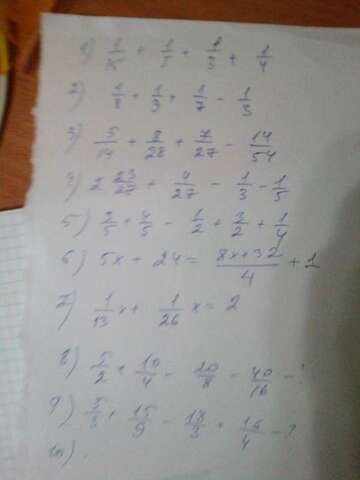 1) 1/15 + 1/5 + 1/3 + 1/4
2) 1/8 + 1/9 + 1/7 - 1/3
3) 5/14 + 8/28 + 7/27 - 14/54
4) 2 23/27 + 4/27 - 1/3 - 1/5
5) 2/5 + 4/5 - 1/2 + 3/2 + 1/4
6) 5x + 24 = 8x+32/4 + 1
7) 1/13 x + 1/26 x = 2
8) 5/2 + 10/4 - 20/8 - 40/16 - ?
9) 5/3 + 15/9 - 18/3 + 16/4 - ?
10) .